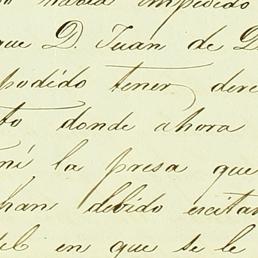 había impedido
que D. Juan de D
podido tener dere
to donde ahora
mi la presa que
han debido escitar
en que se le